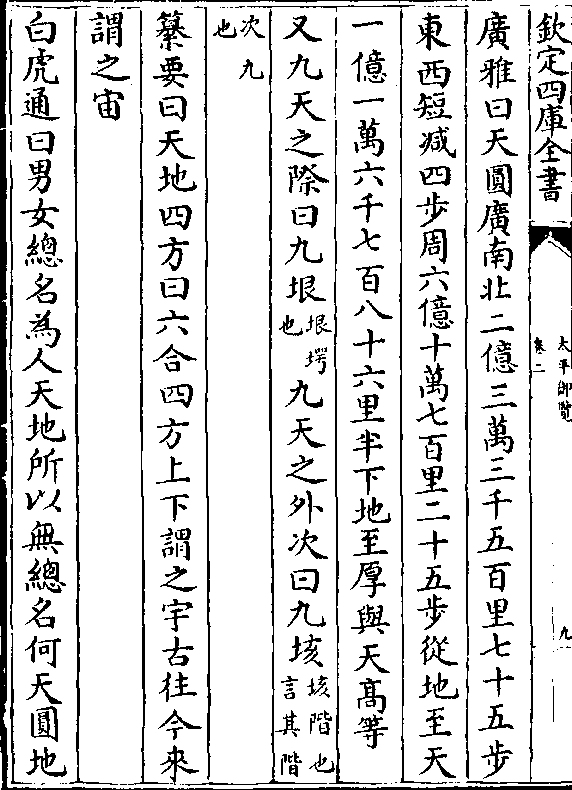 欽定四庫全書
太平御覽
卷二
九
廣雅曰天圓廣南北二億三萬三千五百里七十五步
東西短減四步周六億十萬七百里二十五步從地至天
一億一萬六千七百八十六里半下地至厚與天高等
又九天之際曰九垠垠堮也九天之外次曰九垓垓階也言其階
次九也
纂要曰天地四方曰六合四方上下謂之宇古往今來
謂之宙
白虎通曰男女總名為人天地所以無總名何天圓地